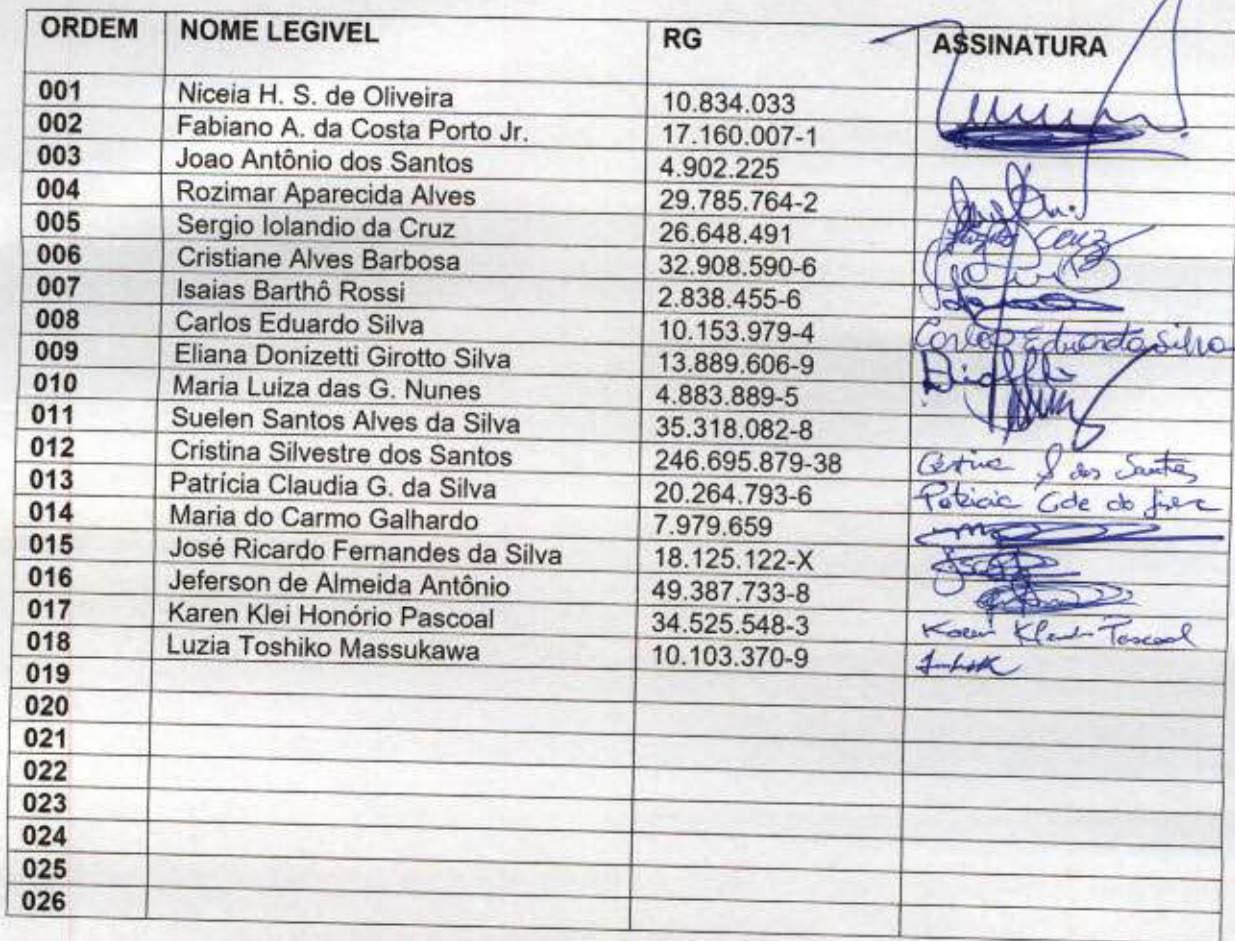 ORDEM NOME LEGIVEL RG ASSINATURA
001 Niceia H. S. de Oliveira 10.834.033
002 Fabiano A. da Costa Porto Jr. 17.160.007-1
003 Joao Antônio dos Santos 4.902.225
004 Rozimar Aparecida Alves 29.785.764-2
005 Sergio Iolandio da Cruz 26.648.491 Cruz
006 Cristiane Alves Barbosa 32.908.590-6
007 Isaias Barthô Rossi 2.838.455-6
008 Carlos Eduardo Silva 10.153.979-4 Carlos Eduardo Silva
009 Eliana Donizetti Girotto Silva 13.889.606-9
010 Maria Luiza das G. Nunes 4.883.889-5
011 Suelen Santos Alves da Silva 35.318.082-8
012 Cristina Silvestre dos Santos 246.695.879-38 S dos Santos
013 Patrícia Claudia G. da Silva 20.264.793-6 Patricia
014 Maria do Carmo Galhardo 7.979.659
015 José Ricardo Fernandes da Silva 18.125.122-X
016 Jeferson de Almeida Antônio 49.387.733-8
017 Karen Klei Honório Pascoal 34.525.548-3 Karen Pascoal
018 Luzia Toshiko Massukawa 10.103.370-9
019
020
021
022
023
024
025
026